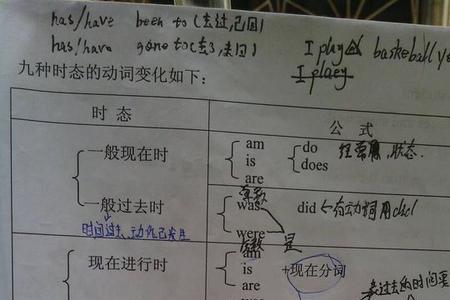 has/have been to (去过,已回)
has/have gone to (去了,未回)
I play basketball ye
I play
九种时态的动词变化如下:
时 态
公 式
一般现在时
am
is
are
do
does
经常 状态.
一般过去时
时间过去、动作已发生
单数
was
were
复数 是
did ← 有动词用did
现在进行时
am
is
are
+现在分词
表过去的时间要